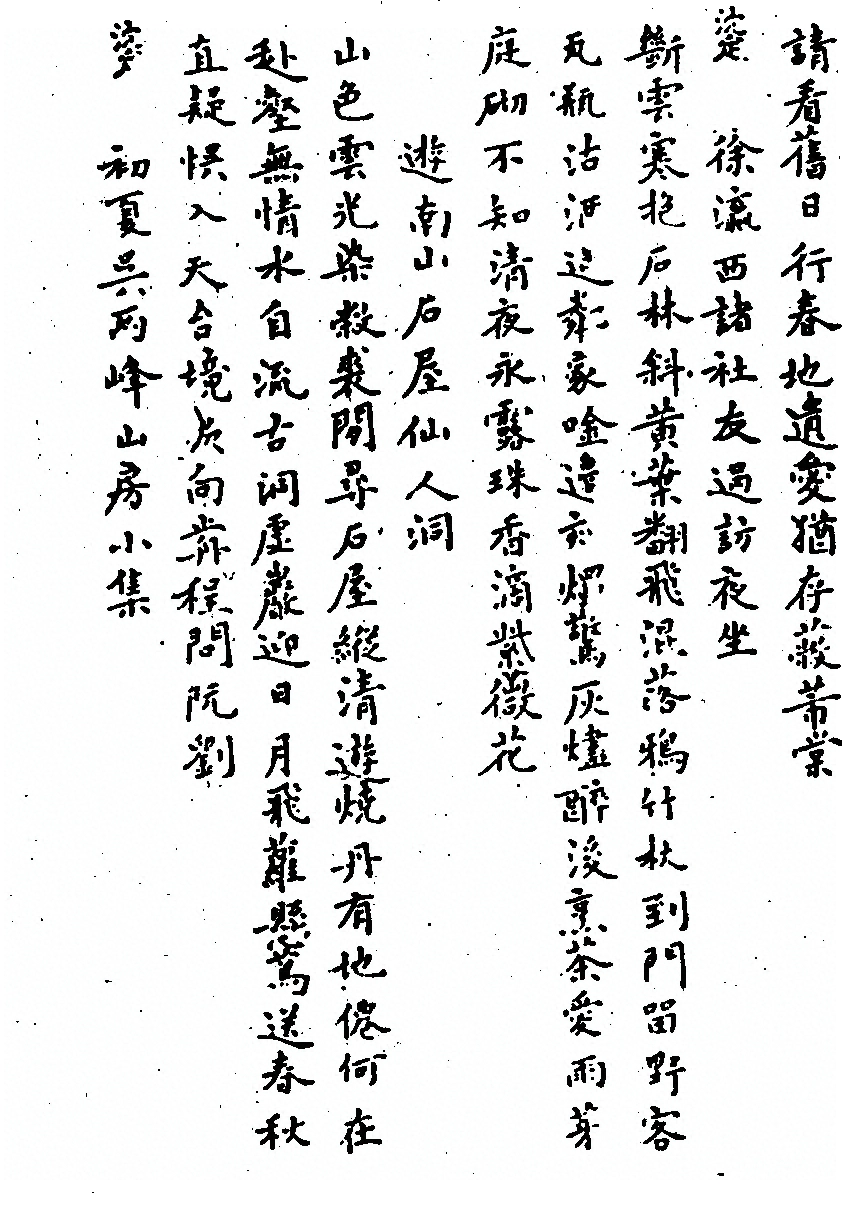 請看舊日行春地遺愛猶存蔽芾棠
徐瀛西諸社友過訪夜坐
斷雲寒抱石林斜黃葉翻飛混落鴉竹杖到門留野客
瓦瓶沽酒近鄰家吟邊永燭驚灰燼醉後烹茶愛雨芽
庭砌不知清夜永露珠香滴紫薇花
遊南山石屋仙人洞
山色雲光染敝裘閒尋石屋縱清遊燒丹有地僊何在
赴壑無情水自流古洞虛巖迎日月飛蘿懸蔦送春秋
直疑悞入天台境向許程問阮劉
初夏吳兩峰山房小集